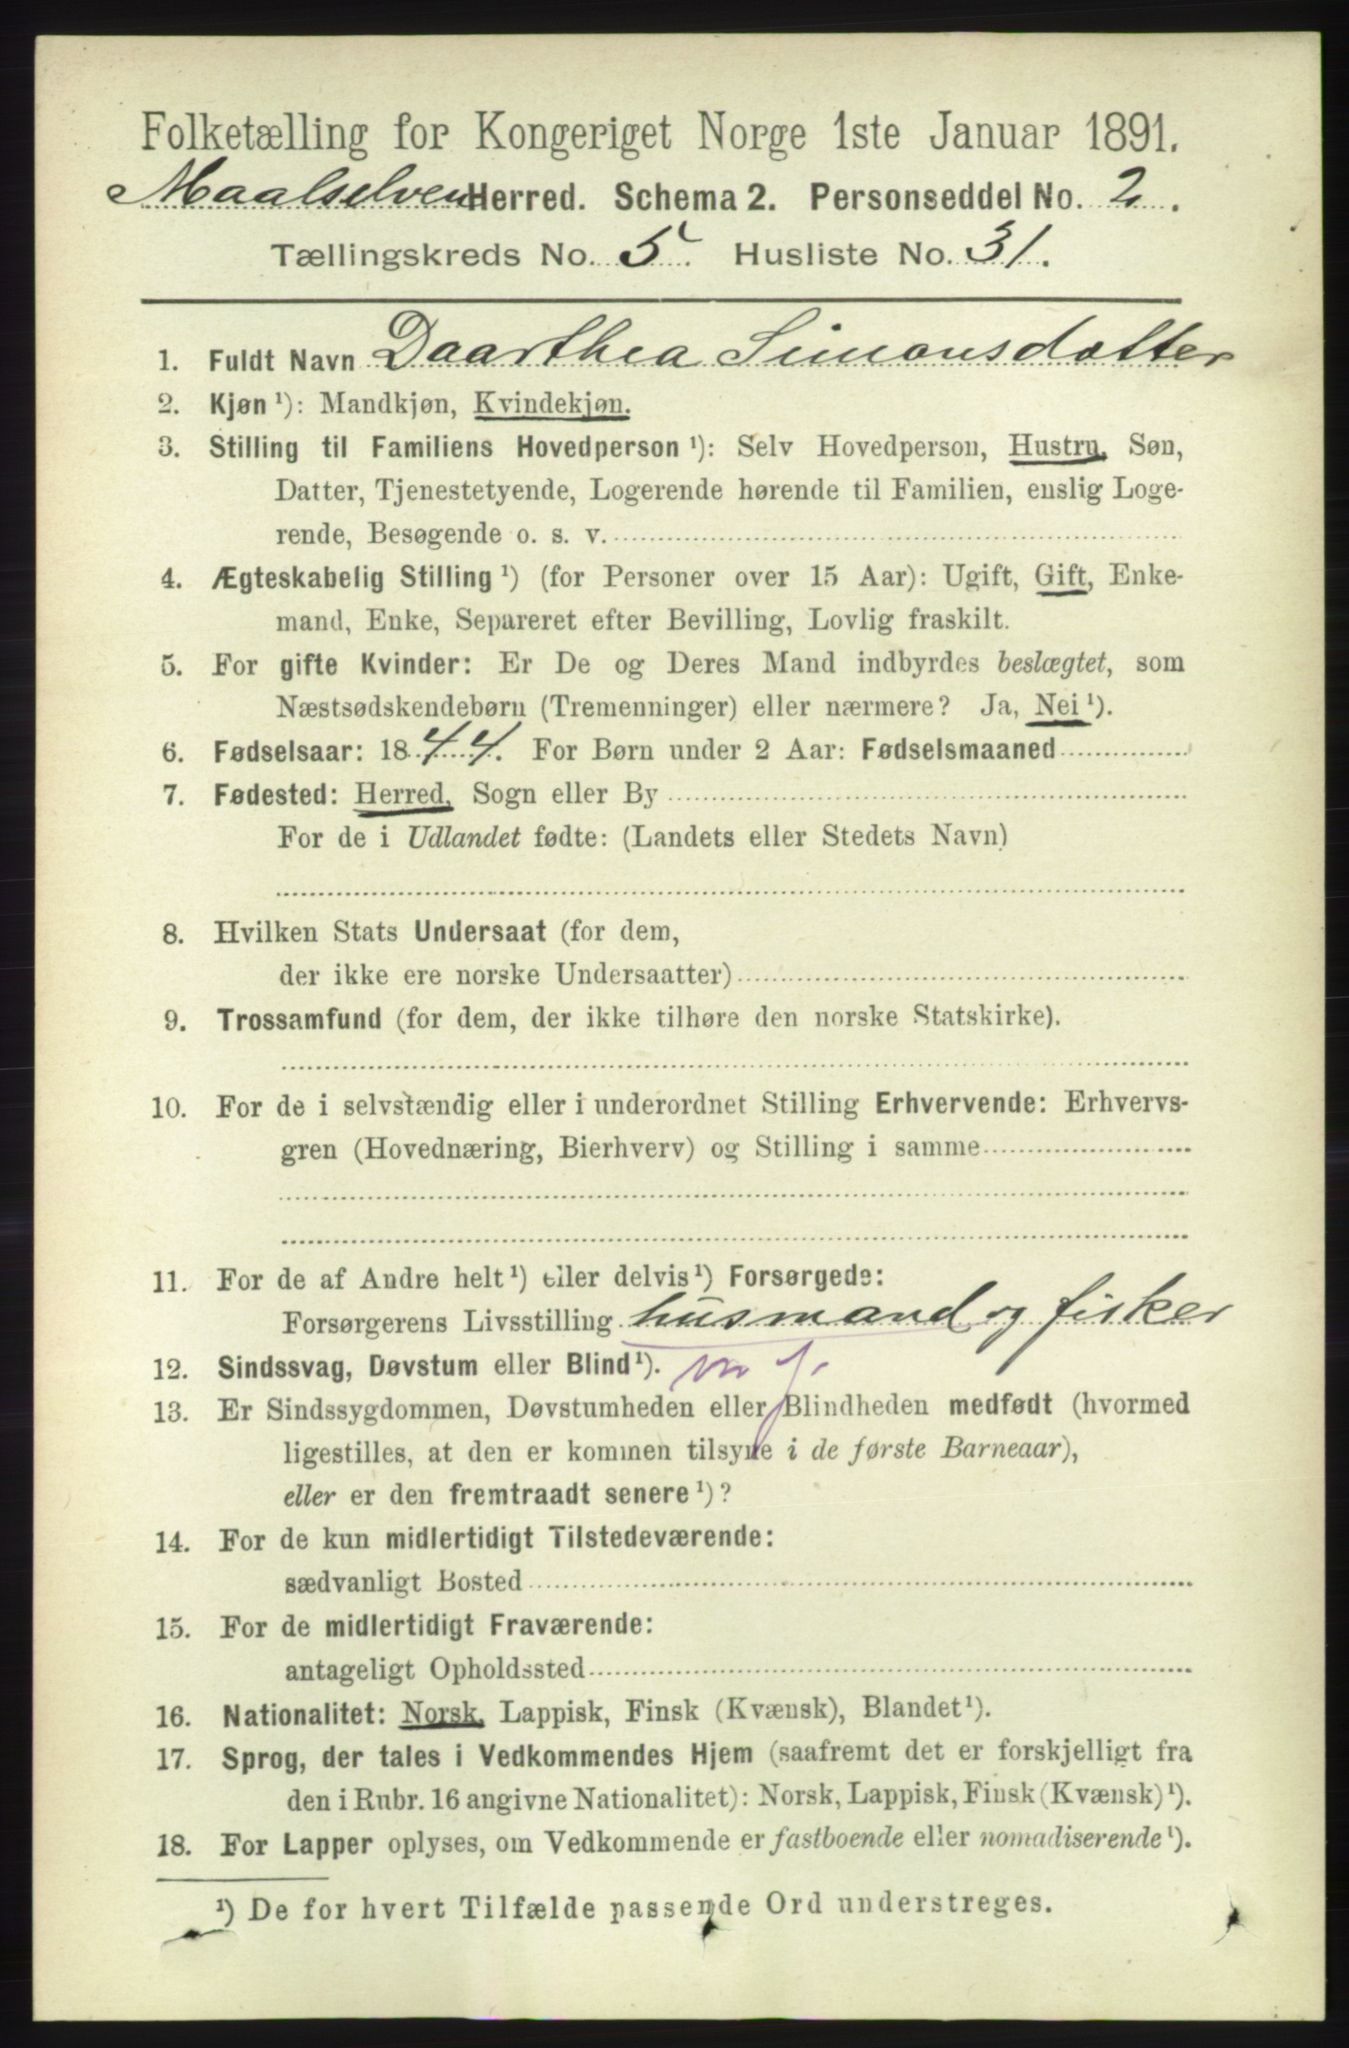 Folketælling for Kongeriget Norge 1ste Januar 1891.
Maalselven Herred. Schema 2. Personseddel No. 2.
Tællingskreds No. 5. Husliste No. 31.
1. Fuldt Navn Daarthea Simonsdatter
2. Kjøn ¹): Mandkjøn, Kvindekjøn.
3. Stilling til Familiens Hovedperson ¹): Selv Hovedperson, Hustru, Søn,
Datter, Tjenestetyende, Logerende hørende til Familien, enslig Loge-
rende, Besøgende o. s. v.
4. Ægteskabelig Stilling ¹) (for Personer over 15 Aar): Ugift, Gift, Enke-
mand, Enke, Separeret efter Bevilling, Lovlig fraskilt.
5. For gifte Kvinder: Er De og Deres Mand indbyrdes beslægtet, som
Næstsødskendebørn (Tremenninger) eller nærmere? Ja, Nei ¹).
6. Fødselsaar: 1844. For Børn under 2 Aar: Fødselsmaaned
7. Fødested: Herred, Sogn eller By
For de i Udlandet fødte: (Landets eller Stedets Navn)
8. Hvilken Stats Undersaat (for dem,
der ikke ere norske Undersaatter)
9. Trossamfund (for dem, der ikke tilhøre den norske Statskirke).
10. For de i selvstændig eller i underordnet Stilling Erhvervende: Erhvervs-
gren (Hovednæring, Bierhverv) og Stilling i samme
11. For de af Andre helt ¹) eller delvis ¹) Forsørgede:
Forsørgerens Livsstilling husmand og fisker
12. Sindssvag, Døvstum eller Blind ¹).
13. Er Sindssygdommen, Døvstumheden eller Blindheden medfødt (hvormed
ligestilles, at den er kommen tilsyne i de første Barneaar),
eller er den fremtraadt senere ¹)?
14. For de kun midlertidigt Tilstedeværende:
sædvanligt Bosted
15. For de midlertidigt Fraværende:
antageligt Opholdssted
16. Nationalitet: Norsk, Lappisk, Finsk (Kvænsk), Blandet ¹).
17. Sprog, der tales i Vedkommendes Hjem (saafremt det er forskjelligt fra
den i Rubr. 16 angivne Nationalitet): Norsk, Lappisk, Finsk (Kvænsk) ¹).
18. For Lapper oplyses, om Vedkommende er fastboende eller nomadiserende ¹).
¹) De for hvert Tilfælde passende Ord understreges.